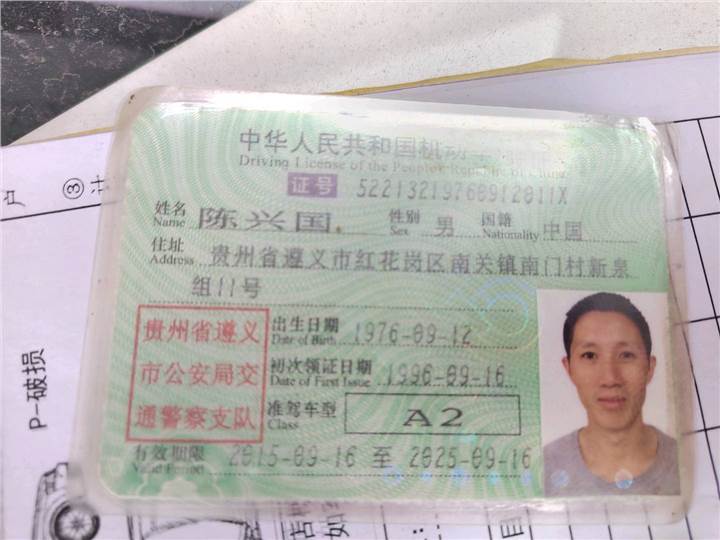 中华人民共和国机动
Driving License of the People's Republic of China
证号 52213219760912011X
姓名 Name 陈兴国 性别 Sex 男 国籍 Nationality 中国
住址 Address 贵州省遵义市红花岗区南关镇南门村新泉
组11号
贵州省遵义
市公安局交
通警察支队
出生日期 Date of Birth 1976-09-12
初次领证日期 Date of First Issue 1996-09-16
准驾车型 Class A2
有效期限 Valid Period 2015-09-16 至 2025-09-16
户
③
P-破损
如
目